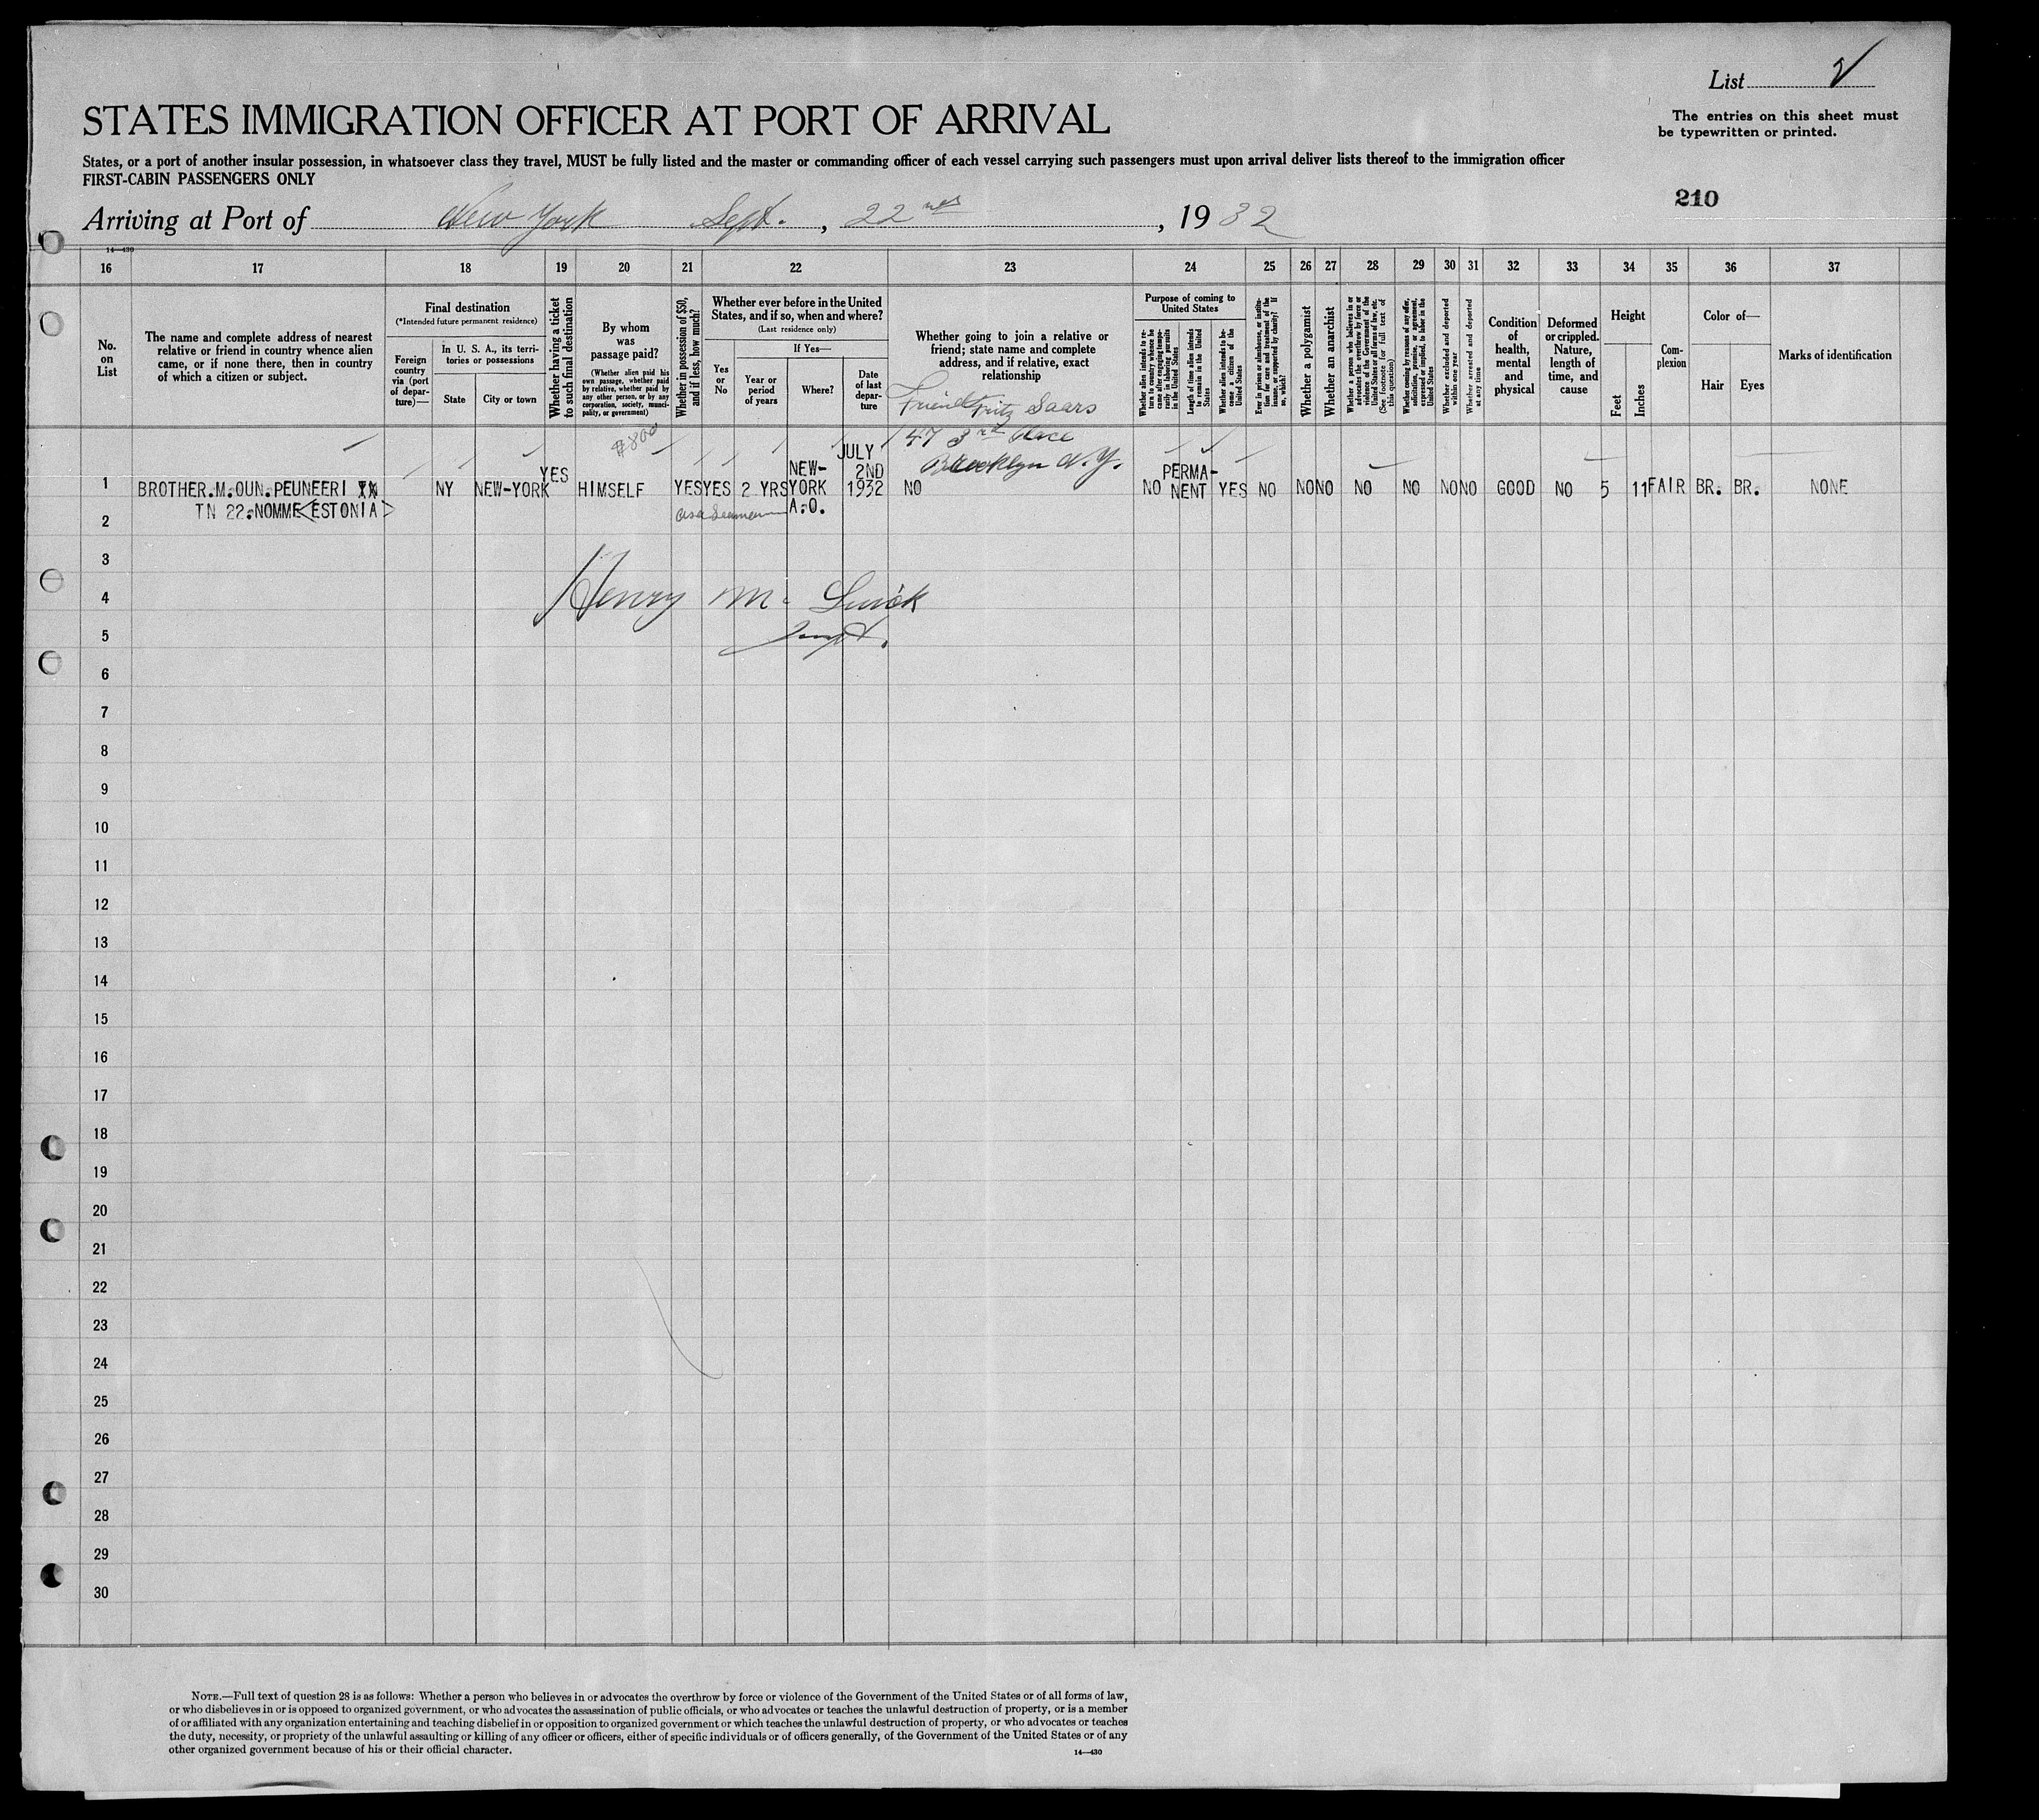 List 2
STATES IMMIGRATION OFFICER AT PORT OF ARRIVAL
The entries on this sheet must
be typewritten or printed.
States, or a port of another insular possession, in whatsoever class they travel, MUST be fully listed and the master or commanding officer of each vessel carrying such passengers must upon arrival deliver lists thereof to the immigration officer
FIRST-CABIN PASSENGERS ONLY
210
Arriving at Port of New York Sept. , 22 nd , 1932
14—430
16 17 18 19 20 21 22 23 24 25 26 27 28 29 30 31 32 33 34 35 36 37
No.
on
List
The name and complete address of nearest
relative or friend in country whence alien
came, or if none there, then in country
of which a citizen or subject.
Final destination
(*Intended future permanent residence)
Foreign
country
via (port
of depar-
ture)—
In U. S. A., its terri-
tories or possessions
State
City or town
Whether having a ticket
to such final destination
By whom
was
passage paid?
(Whether alien paid his
own passage, whether paid
by relative, whether paid by
any other person, or by any
corporation, society, munici-
pality, or government)
Whether in possession of $50,
and if less, how much?
Whether ever before in the United
States, and if so, when and where?
(Last residence only)
If Yes—
Yes
or
No
Year or
period
of years
Where?
Date
of last
depar-
ture
Whether going to join a relative or
friend; state name and complete
address, and if relative, exact
relationship
Purpose of coming to
United States
Whether alien intends to re-
turn to country whence he
came after engaging tempo-
rarily in laboring pursuits
in the United States
Length of time alien intends
to remain in the United
States
Whether alien intends to be-
come a citizen of the
United States
Ever in prison or almshouse, or institu-
tion for care and treatment of the
insane, or supported by charity? If
so, which?
Whether a polygamist
Whether an anarchist
Whether a person who believes in or
advocates the overthrow by force or
violence of the Government of the
United States or all forms of law, etc.
(See footnote for full text of
this question)
Whether coming by reasons of any offer,
solicitation, promise, or agreement,
expressed or implied, to labor in the
United States
Whether excluded and deported
within one year
Whether arrested and deported
at any time
Condition
of
health,
mental
and
physical
Deformed
or crippled.
Nature,
length of
time, and
cause
Height
Feet
Inches
Com-
plexion
Color of—
Hair
Eyes
Marks of identification
Friend Fritz Saars
47 3rd Place
Brooklyn N.Y.
$800
1 BROTHER.M.OUN.PEUNEERI NY NEW-YORK YES HIMSELF YES YES 2 YRS NEW-YORK JULY 2ND 1932 NO NO PERMA-NENT YES NO NO NO NO NO NO NO GOOD NO 5 11 FAIR BR. BR. NONE
2 TN 22.NOMME<ESTONIA> as a Seaman A.O.
3
4 Henry Mc
5
6
7
8
9
10
11
12
13
14
15
16
17
18
19
20
21
22
23
24
25
26
27
28
29
30
NOTE.—Full text of question 28 is as follows: Whether a person who believes in or advocates the overthrow by force or violence of the Government of the United States or of all forms of law,
or who disbelieves in or is opposed to organized government, or who advocates the assassination of public officials, or who advocates or teaches the unlawful destruction of property, or is a member
of or affiliated with any organization entertaining and teaching disbelief in or opposition to organized government or which teaches the unlawful destruction of property, or who advocates or teaches
the duty, necessity, or propriety of the unlawful assaulting or killing of any officer or officers, either of specific individuals or of officers generally, of the Government of the United States or of any
other organized government because of his or their official character.
14—430